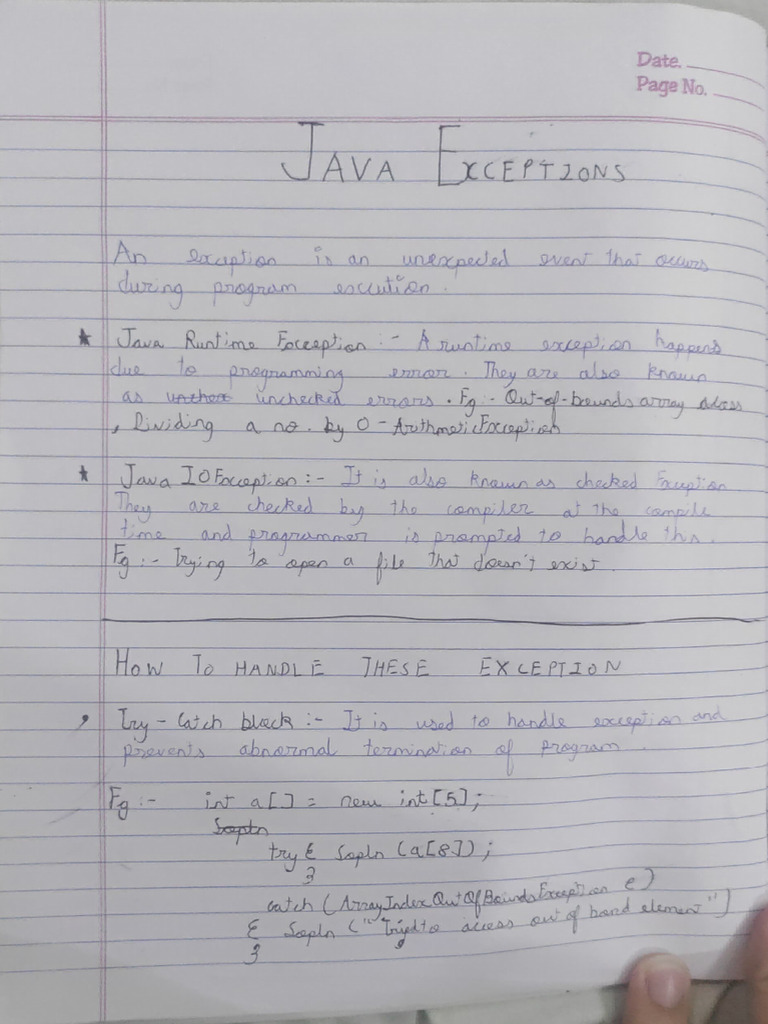 Date.
Page No.
JAVA EXCEPTIONS
An exception is an unexpected event that occurs
during program excution.
★ Java Runtime Exception :- A runtime exception happens
due to programming error. They are also known
as unchecked errors. Eg :- Out-of-bounds array access
, Dividing a no. by 0 - ArithmeticException
★ Java IOException :- It is also known as checked Exception
They are checked by the compiler at the compile
time and programmer is prompted to handle this.
Eg :- Trying to open a file that doesn't exist.
HOW TO HANDLE THESE EXCEPTION
, Try - Catch block :- It is used to handle exception and
prevents abnormal termination of program.
Eg :- int a[] = new int[5];
Sopln
try { Sopln (a[8]);
}
catch (ArrayIndexOutOfBoundsException e)
{ Sopln ("Tried to access out of bond element")
}